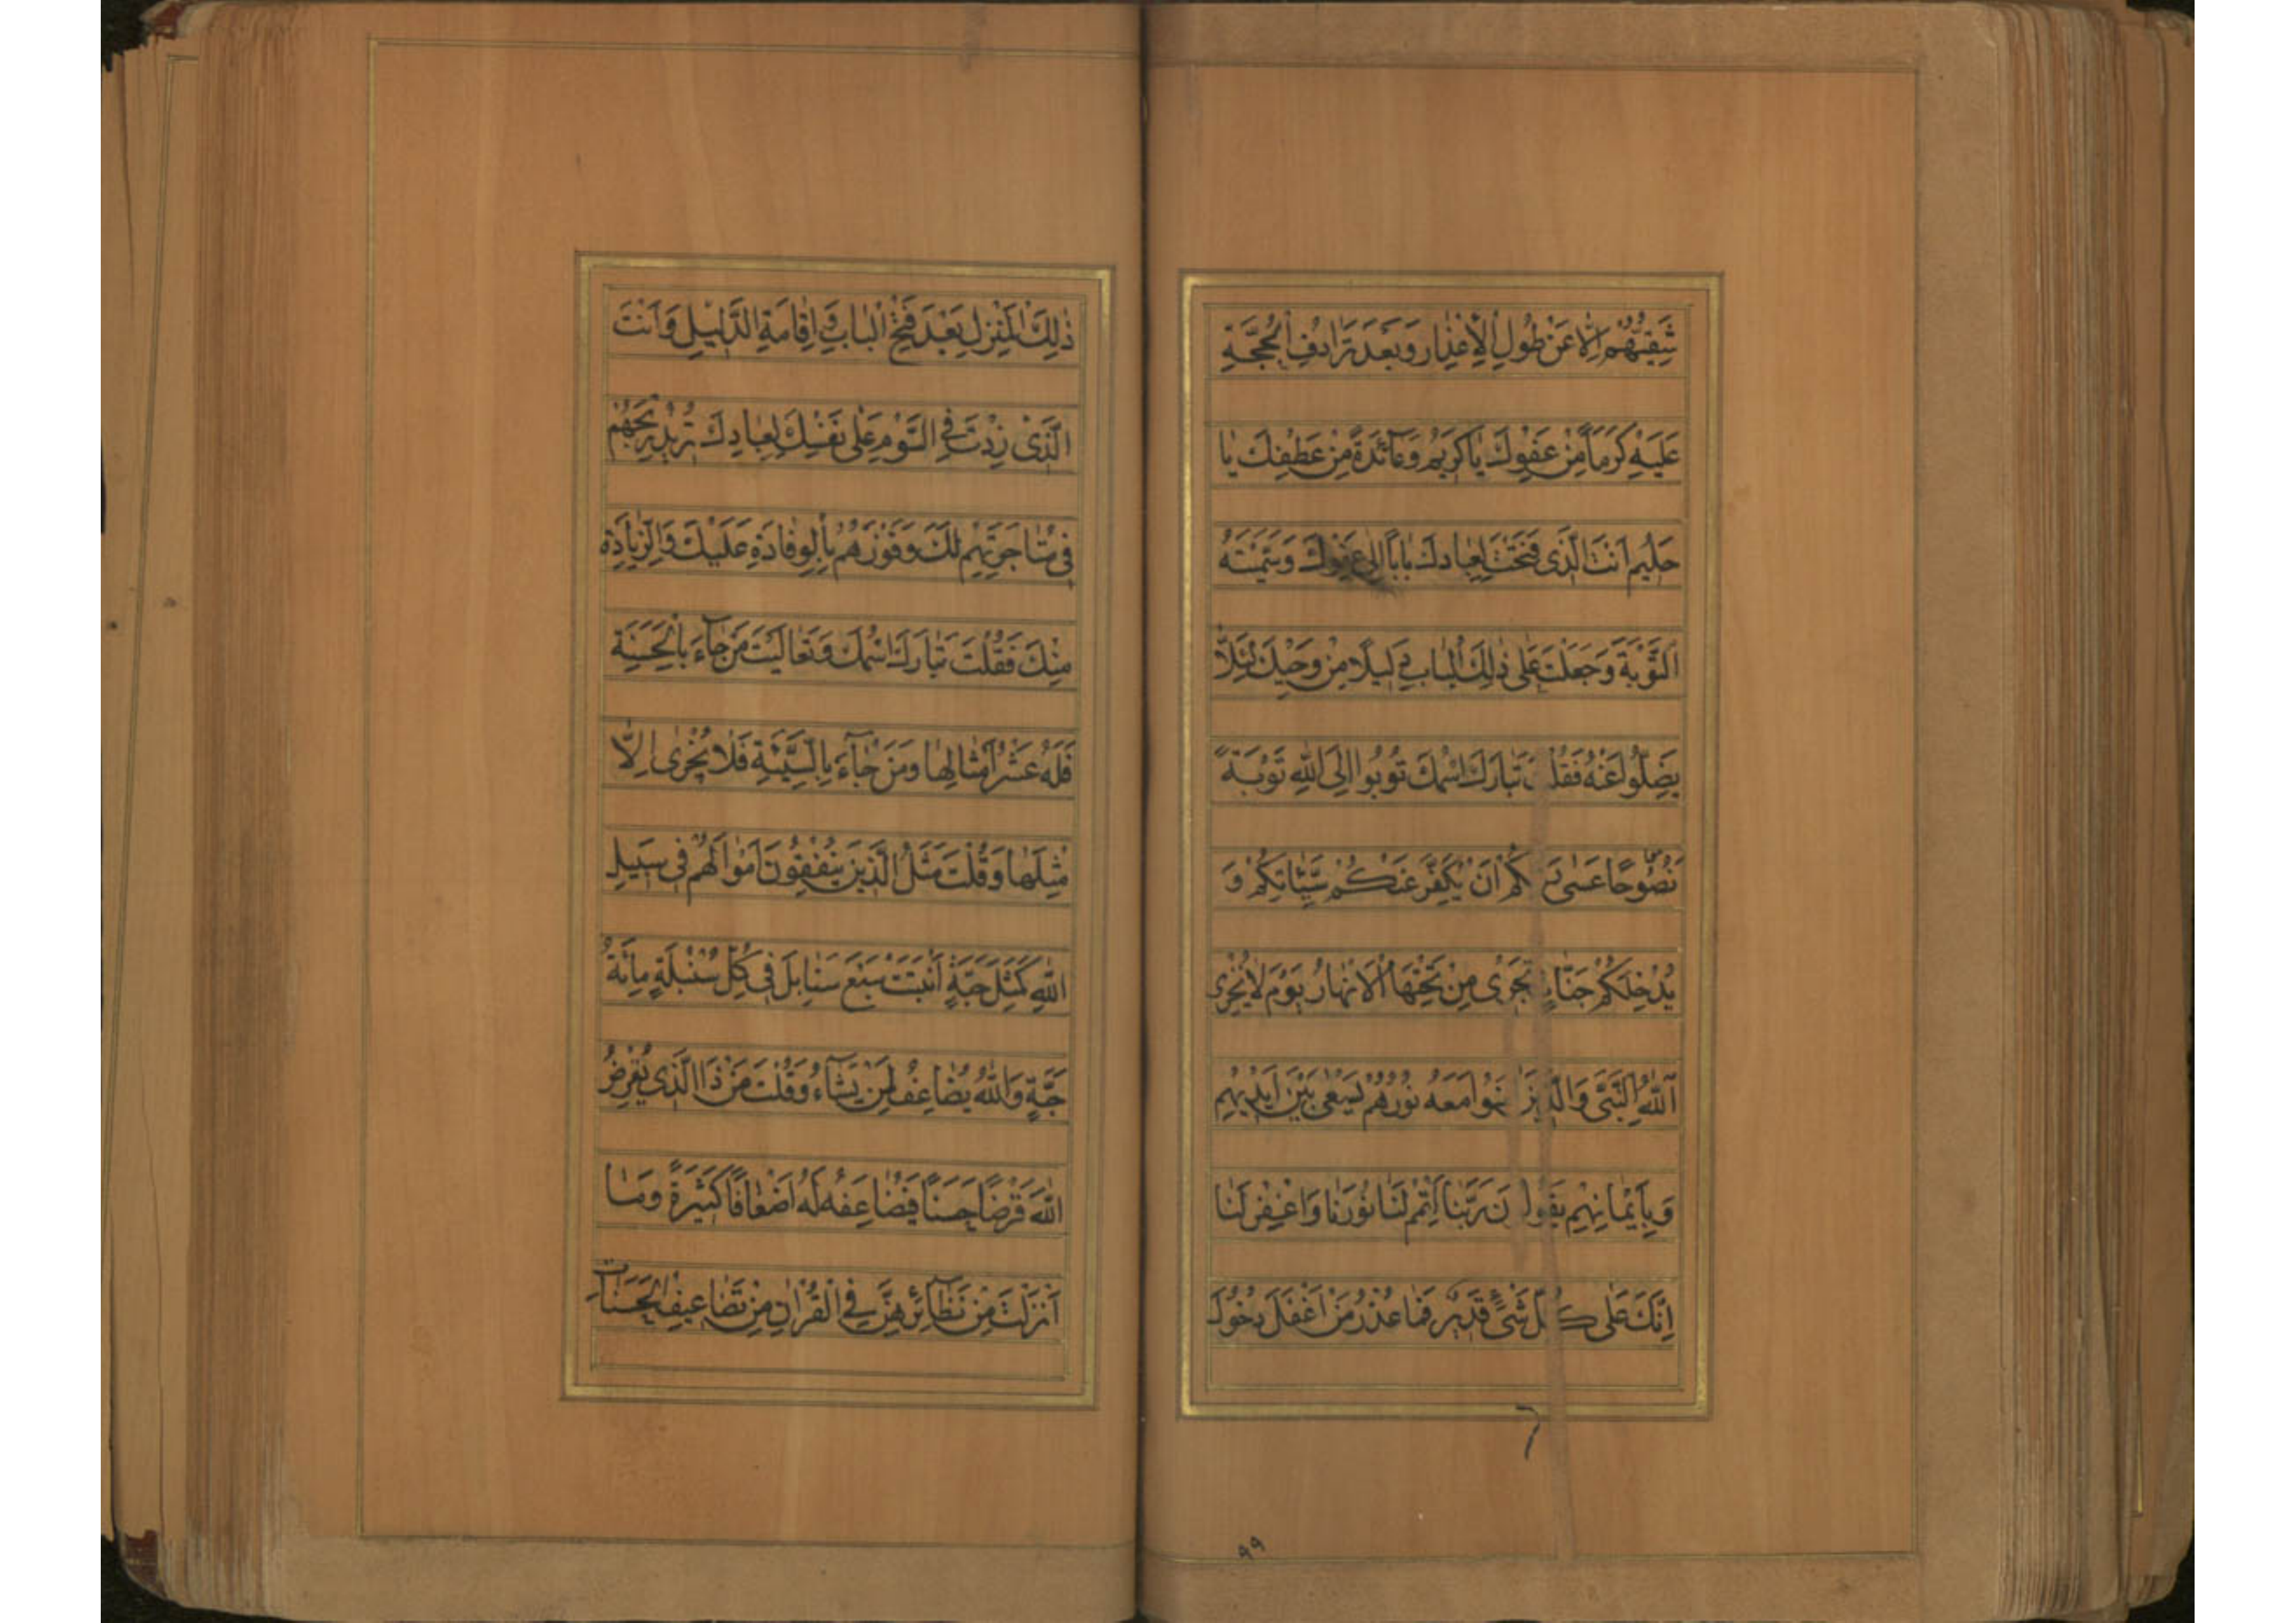 شَقِيُّهُمْ اِلَّا عَنْ طُولِ الْاِعْذَارِ وَبَعْدَ تَرَادُفِ الْحُجَّةِ
عَلَيْهِ كَرَمًا مِنْ عَفْوِكَ يَا كَرِيمُ وَعَائِدَةً مِنْ عَطْفِكَ يَا
حَلِيمُ اَنْتَ الَّذِى فَتَحْتَ لِعِبَادِكَ بَابًا اِلَى عَفْوِكَ وَسَمَّيْتَهُ
التَّوْبَةَ وَجَعَلْتَ عَلَى ذٰلِكَ الْبَابِ دَلِيلًا مِنْ وَحْيِكَ لِئَلَّا
يَضِلُّوا عَنْهُ فَقُلْتَ تَبَارَكَ اسْمُكَ تُوبُوا اِلَى اللّٰهِ تَوْبَةً
نَصُوحًا عَسٰى رَبُّكُمْ اَنْ يُكَفِّرَ عَنْكُمْ سَيِّئَاتِكُمْ وَ
يُدْخِلَكُمْ جَنَّاتٍ تَجْرِى مِنْ تَحْتِهَا الْاَنْهَارُ يَوْمَ لَا يُخْزِى
اللّٰهُ النَّبِىَّ وَالَّذِينَ اٰمَنُوا مَعَهُ نُورُهُمْ يَسْعٰى بَيْنَ اَيْدِيهِمْ
وَبِاَيْمَانِهِمْ يَقُولُونَ رَبَّنَا اَتْمِمْ لَنَا نُورَنَا وَاغْفِرْ لَنَا
اِنَّكَ عَلٰى كُلِّ شَىْءٍ قَدِيرٌ فَمَا عُذْرُ مَنْ اَغْفَلَ دُخُولَ
٩٩
ذٰلِكَ الْمَنْزِلِ بَعْدَ فَتْحِ الْبَابِ وَاِقَامَةِ الدَّلِيلِ وَاَنْتَ
الَّذِى زِدْتَ فِى السَّوْمِ عَلٰى نَفْسِكَ لِعِبَادِكَ تُرِيدُ رِبْحَهُمْ
فِى مُتَاجَرَتِهِمْ لَكَ وَفَوْزَهُمْ بِالْوِفَادَةِ عَلَيْكَ وَالزِّيَادَةِ
مِنْكَ فَقُلْتَ تَبَارَكَ اسْمُكَ وَتَعَالَيْتَ مَنْ جَآءَ بِالْحَسَنَةِ
فَلَهُ عَشْرُ اَمْثَالِهَا وَمَنْ جَآءَ بِالسَّيِّئَةِ فَلَا يُجْزٰى اِلَّا
مِثْلَهَا وَقُلْتَ مَثَلُ الَّذِينَ يُنْفِقُونَ اَمْوَالَهُمْ فِى سَبِيلِ
اللّٰهِ كَمَثَلِ حَبَّةٍ اَنْبَتَتْ سَبْعَ سَنَابِلَ فِى كُلِّ سُنْبُلَةٍ مِائَةُ
حَبَّةٍ وَاللّٰهُ يُضَاعِفُ لِمَنْ يَشَآءُ وَقُلْتَ مَنْ ذَا الَّذِى يُقْرِضُ
اللّٰهَ قَرْضًا حَسَنًا فَيُضَاعِفَهُ لَهُ اَضْعَافًا كَثِيرَةً وَمَا
اَنْزَلْتَ مِنْ نَظَآئِرِهِنَّ فِى الْقُرْاٰنِ مِنْ تَضَاعِيفِ الْحَسَنَاتِ